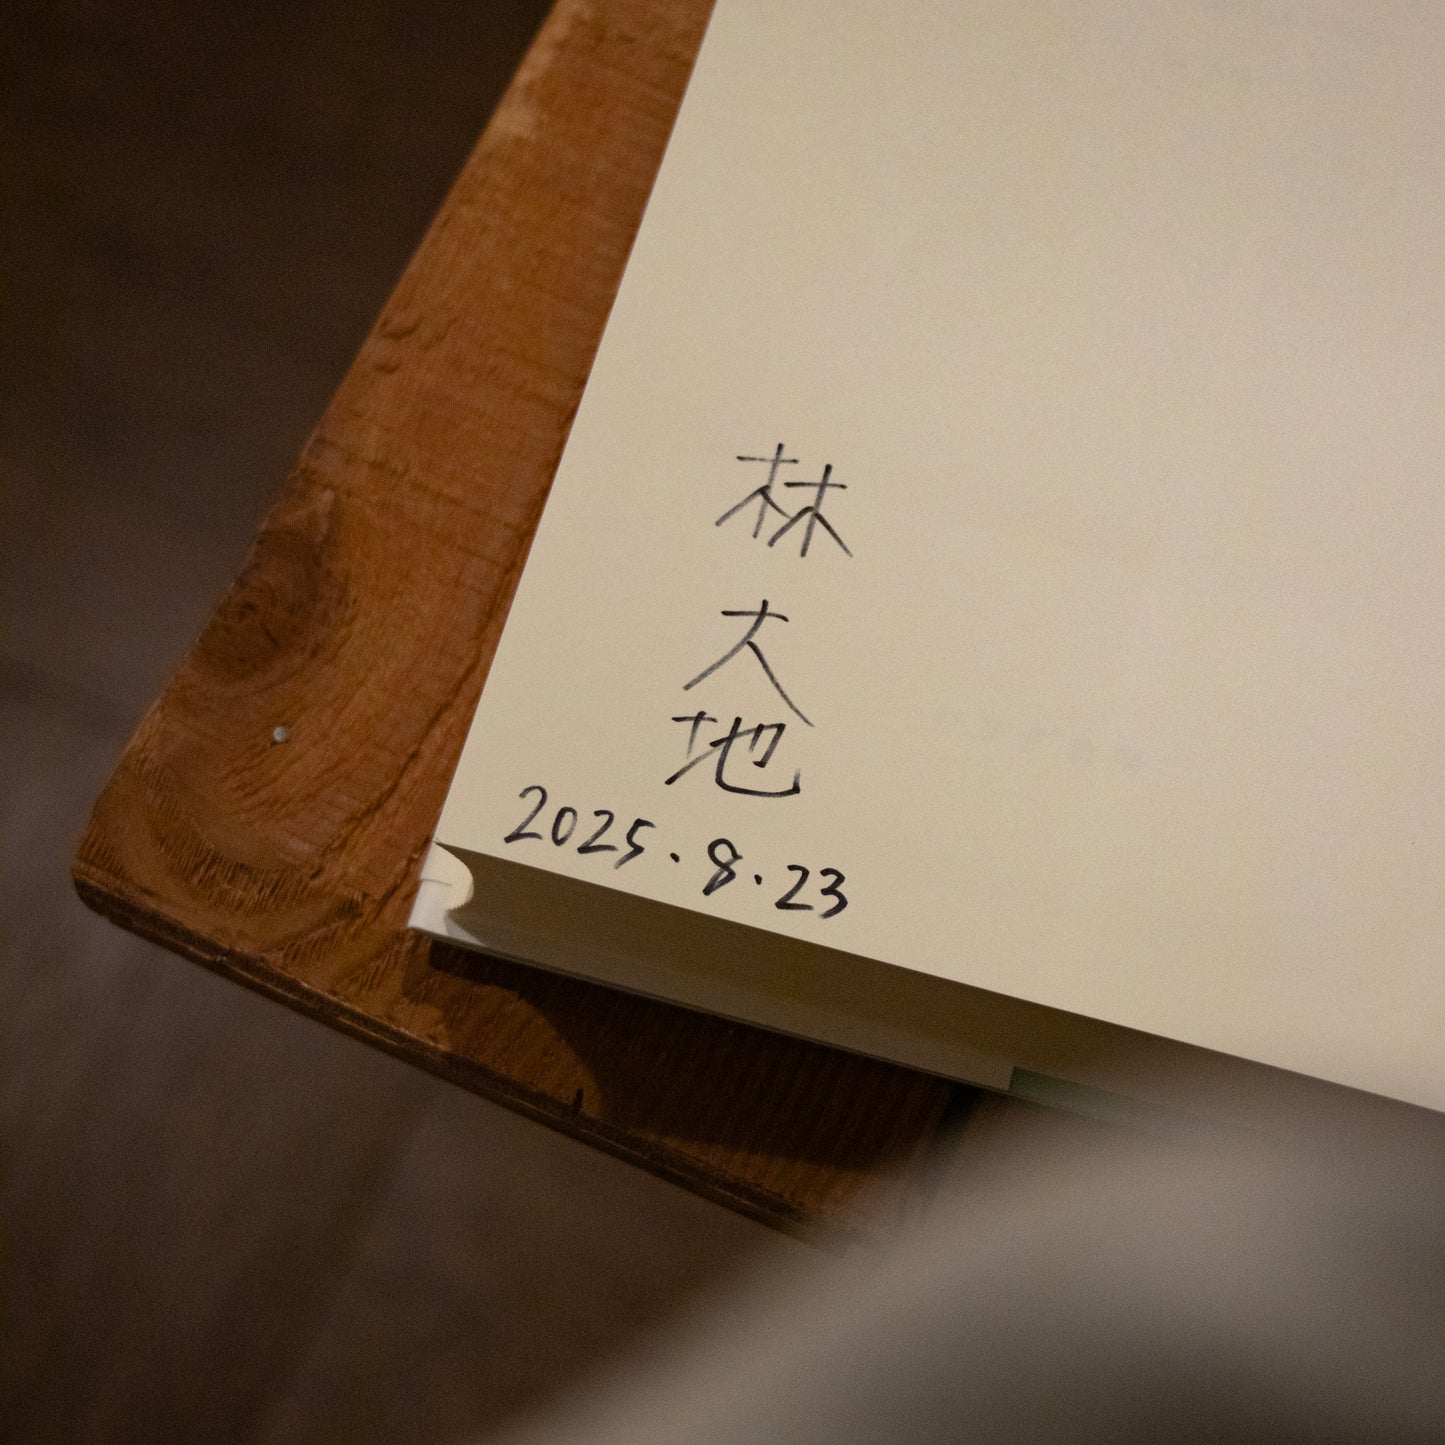 林
大地
2025.8.23